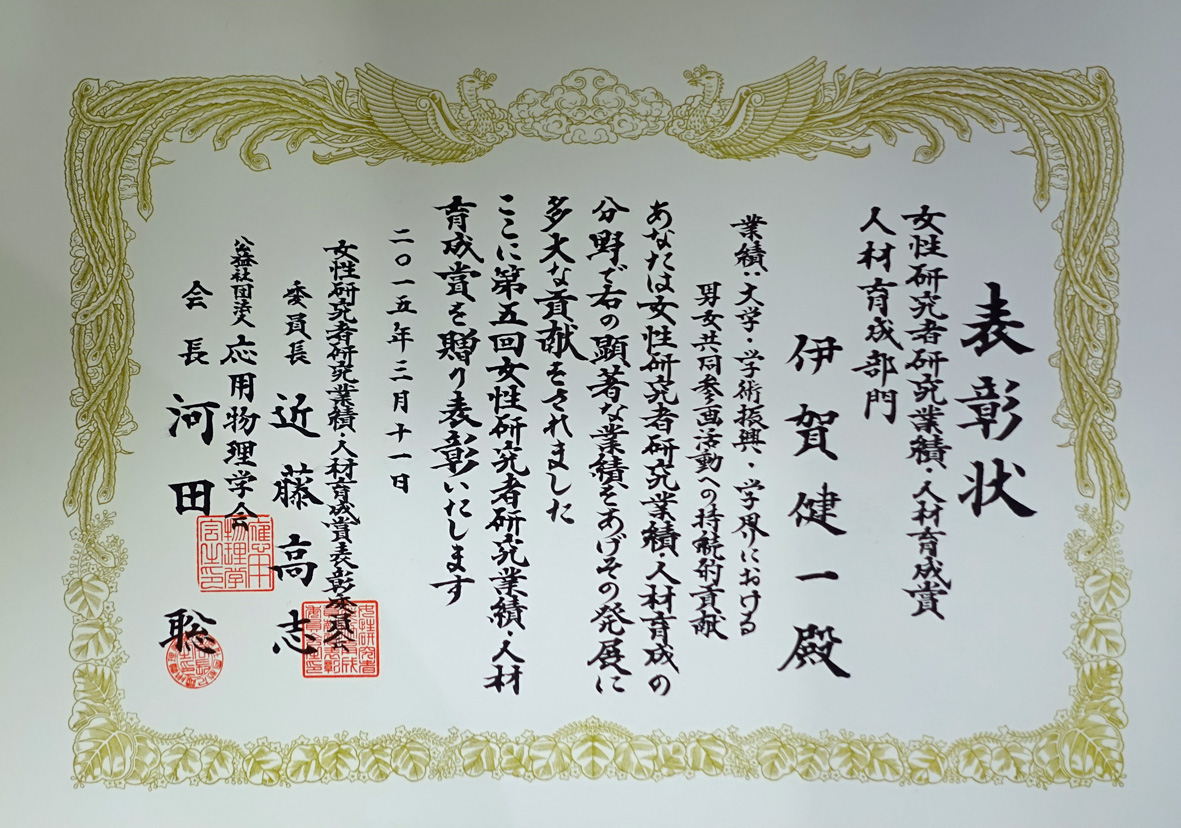 表彰状
女性研究者研究業績・人材育成賞
人材育成部門
伊賀健一殿
業績：大学・学術振興・学界における
男女共同参画活動への持続的貢献
あなたは女性研究者研究業績・人材育成の
分野で右の顕著な業績をあげその発展に
多大な貢献をされました
ここに第五回女性研究者研究業績・人材
育成賞を贈り表彰いたします
二〇一五年三月十一日
女性研究者研究業績・人材育成賞表彰委員会
委員長 近藤高志
公益社団法人 応用物理学会
会長 河田聡